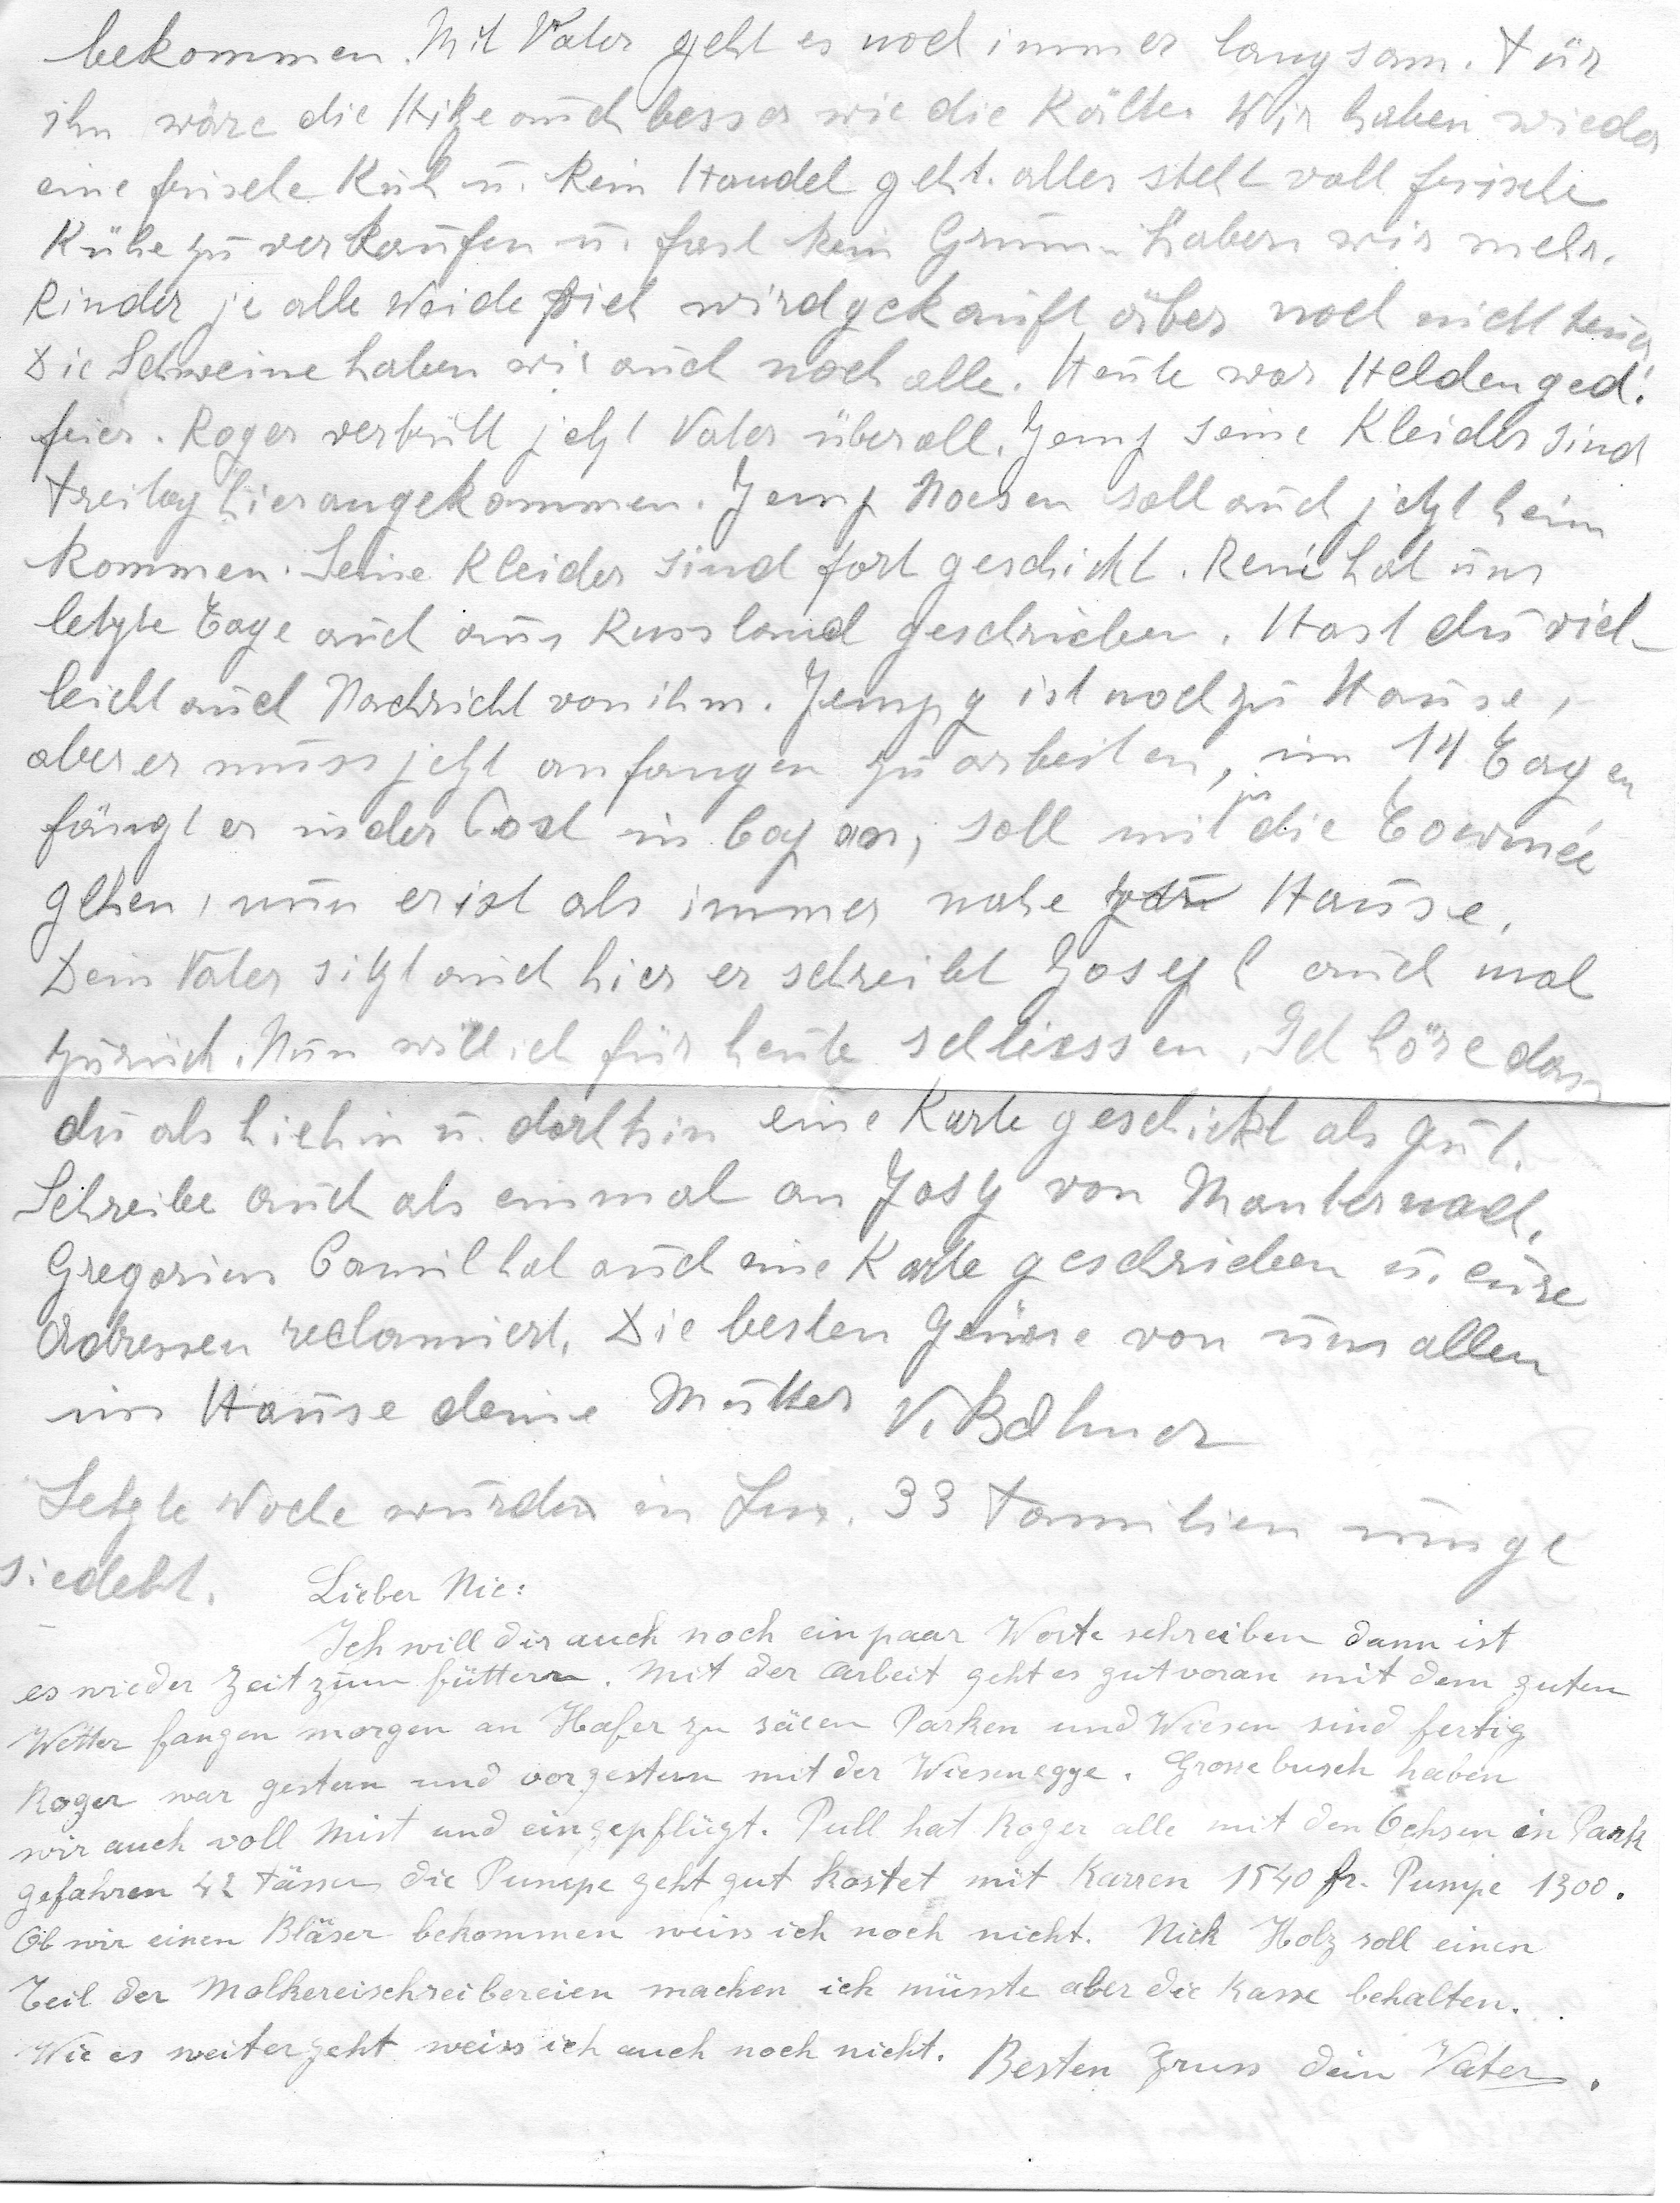 bekommen. Mit Vater geht es noch immer langsam. Für
ihn wäre die Hitze auch besser wie die Kälte. Wir haben wieder
eine frische Kuh u. kein Handel geht. alles steht voll frische
Kühe zu verkaufen u. fast kein Grum haben wir mehr.
Rinder je alle Weide Vieh wird gekauft aber noch nicht teuer
Die Schweine haben wir auch noch alle. Heute war Heldenged.
feier. Roger vertritt jetzt Vater überall. Jemp seine Kleider sind
Freitag hier angekommen. Jemp Noesen soll auch jetzt heim
kommen. Seine Kleider sind fort geschickt. René hat uns
letzte Tage auch aus Russland geschrieben. Hast du viel-
leicht auch Nachricht von ihm. Jempy ist noch zu Hause,
aber er muss jetzt anfangen zu arbeiten, in 14 Tagen
fängt er in der Post in Cap an, soll mit die Tournée
gehen, nun er ist als immer nahe zu Hause.
Dein Vater sitzt auch hier er schreibt Josef auch mal
zurück. Nun will ich für heute schliessen. Ich höre dass
du als hiehin u. dorthin eine Karte geschickt als gut.
Schreibe auch als einmal an Josy von Manternach.
Gregorius Camil hat auch eine Karte geschrieben u. eure
Adressen reclamiert. Die besten Grüsse von uns allen
im Hause deine Mutter
Letzte Woche wurden in Lux. 33 Familien umge
siedelt.
Lieber Nic:
Ich will dir auch noch ein paar Worte schreiben dann ist
es wieder Zeit zum füttern. Mit der Arbeit geht es gut voran mit dem guten
Wetter fangen morgen an Hafer zu säeen Parken und Wiesen sind fertig
Roger war gestern und vorgestern mit der Wiesenegge. Grossebusch haben
wir auch voll Mist und eingepflügt. Pull hat Roger alle mit den Ochsen in Park
gefahren 42 Fässer die Pumpe geht gut kostet mit Karren 1540 fr. Pumpe 1300.
Ob wir einen Bläser bekommen weiss ich noch nicht. Nick Holz soll einen
Teil der Molkereischreibereien machen ich müsste aber die Kasse behalten.
Wie es weiter geht weiss ich auch noch nicht. Besten Gruss dein Vater.